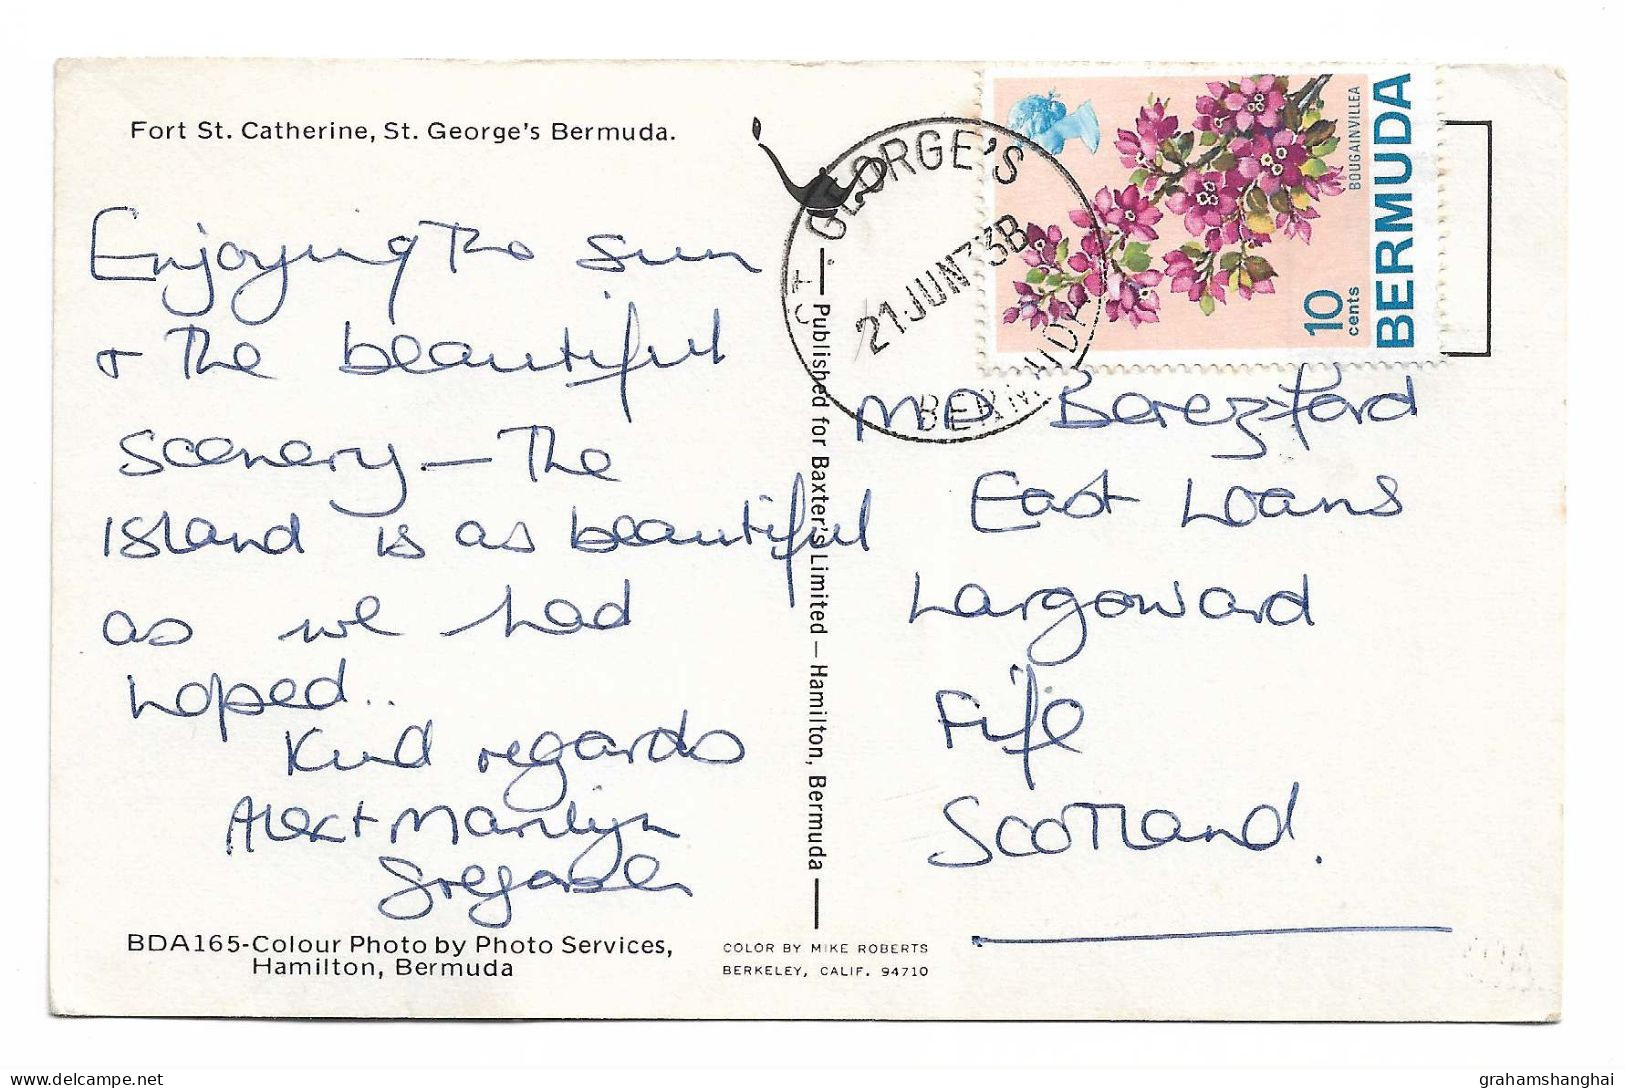 Fort St. Catherine, St. George's Bermuda.
Enjoying the sun
+ the beautiful
scenery – the
island is as beautiful
as we had
hoped..
Kind regards
Alex + Marilyn
BDA165-Colour Photo by Photo Services,
Hamilton, Bermuda
Published for Baxter's Limited – Hamilton, Bermuda
COLOR BY MIKE ROBERTS
BERKELEY, CALIF. 94710
ST. GEORGE'S
21 JUN 73 B
BERMUDA
BOUGAINVILLEA
10
cents
BERMUDA
East Loans
Largoward
Fife
Scotland.
grahamshanghai
delcampe.net